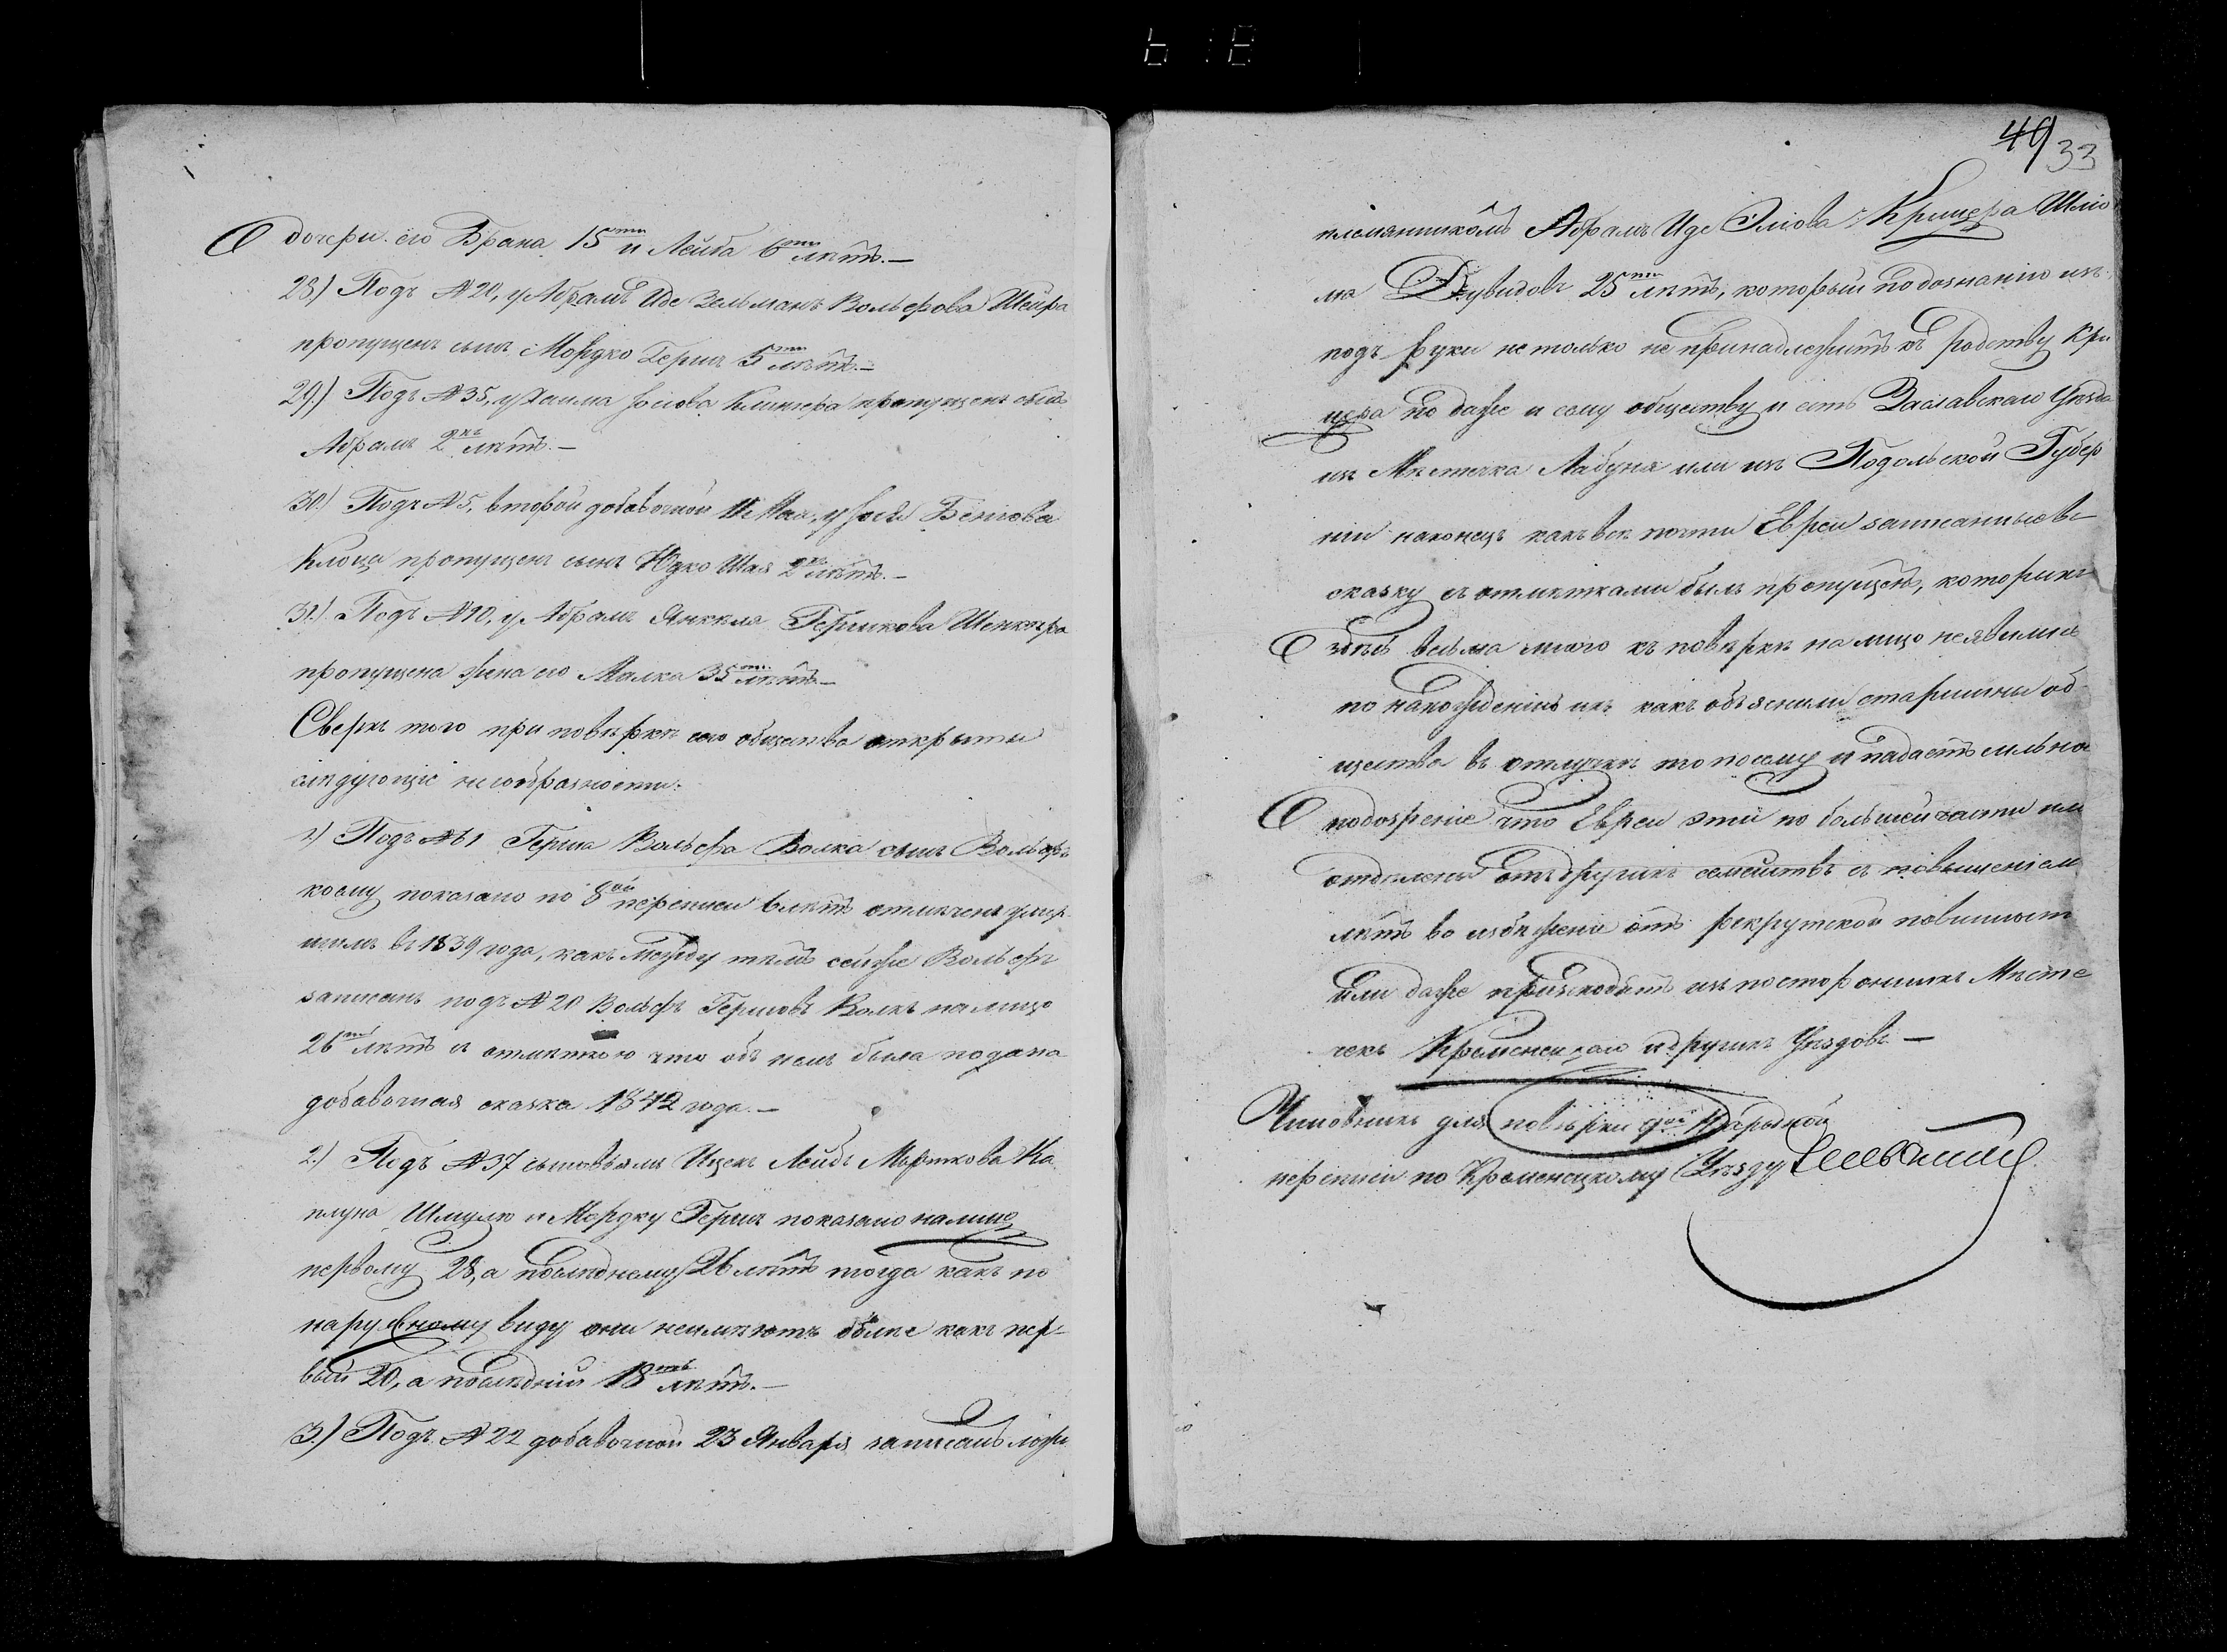 дочери его Брана 15ти и Лейба 6ти лѣтъ.—
28.) Подъ №20, у Абрамъ Иде Зельманъ Вольфова Шейра
пропущенъ сынъ Мордко Гершъ 5ти лѣтъ.—
29.) Подъ №35, у Хаима Іосіова Клигера пропущенъ сынъ
Абрамъ 2хъ лѣтъ.—
30.) Подъ №5, второй добавочной 11 Мая, у Іося Беніова
Клоца пропущенъ сынъ Юдко Шая 2хъ лѣтъ.—
31.) Подъ №10, у Абрамъ Янкеля Гершкова Шенкера
пропущена жена его Малка 35ти лѣтъ.—
Сверхъ того при повѣркѣ сего общества открыты
слѣдующіе несообразности:
1.) Подъ №61 Герша Вольфа Волка сынъ Вольфъ
коему показано по 8ой переписи 6 лѣтъ отмѣченъ умер-
шимъ въ 1839 года, какъ между тѣмъ сейже Вольфъ
записанъ подъ №20 Вольфъ Гершовъ Волкъ налицо
26ти лѣтъ съ отмѣткою что объ немъ была подана
добавочная сказка 1842 года.—
2.) Подъ №37 сыновьямъ Ицекъ Лейбъ Морткова Ка
плуна Шмулю и Мордку Гершъ показано налице
первому 28, а послѣднему 26 лѣтъ тогда какъ по
наружному виду они неимѣютъ болѣе какъ пер-
вый 20, а послѣдній 18ть лѣтъ.—
3.) Подъ №22 добавочной 23 Января записанъ ложн
49 33
племянникомъ Абрамъ Иде Эліова Крицера Шліо
ма Дувидовъ 25ти лѣтъ, который по дознанію изъ
подъ руки не только не принадлежитъ къ родству Кри
цера но даже и сему обществу и есть Заславскаго Уѣзда
изъ Мѣстечка Лабуня или изъ Подольской Губер
ніи наконецъ какъ всѣ почти Евреи записанные въ
сказку съ отмѣтками былъ пропущенъ, которыхъ
здѣсь весьма много къ повѣркѣ на лицо неявились
по нахожденію ихъ какъ объяснили старшины об-
щества въ отлучкѣ то посему и падаетъ сильно
подозрѣніе что Евреи эти по большей части или
отдѣлены отъ другихъ семействъ съ повышеніем
лѣтъ во избѣженіе отъ рекрутской повинност
или даже происходятъ изъ постороннихъ Мѣсте
чекъ Кременецкаго и другихъ Уѣздовъ.—
Чиновникъ для повѣрки 9ой Народной
переписи по Кременецкому Уѣзду